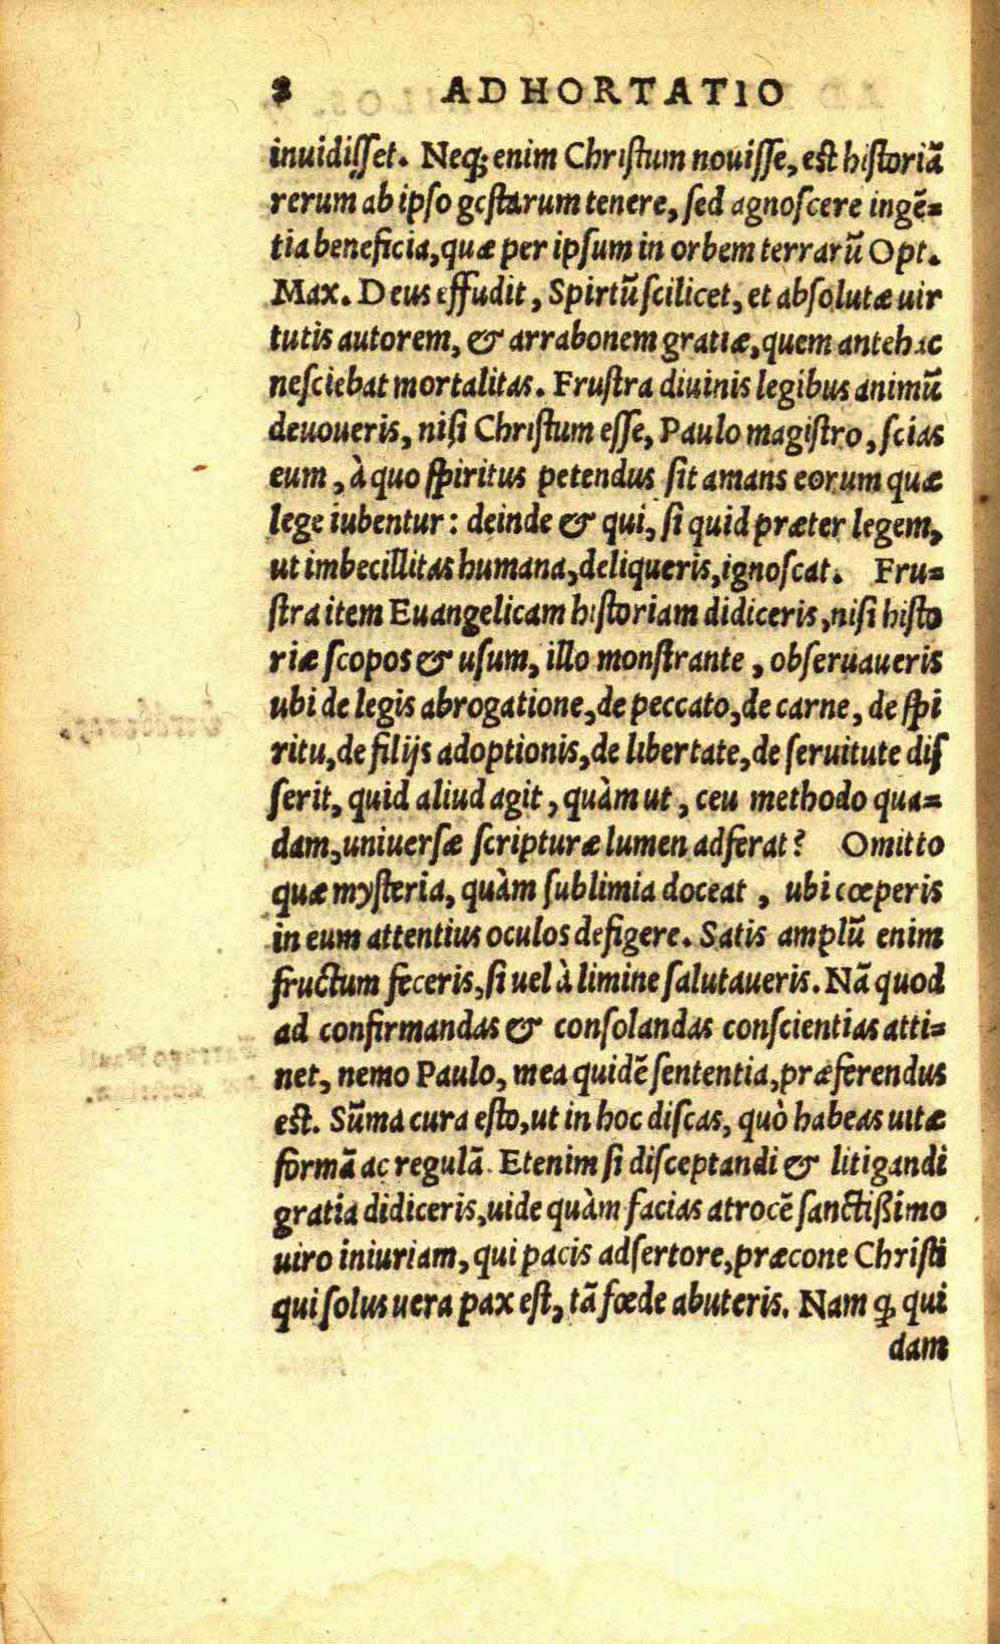 8 ADHORTATIO
inuidiſſet. Neq; enim Chriſtum nouiſſe, eſt hiſtoriā
rerum ab ipſo geſtarum tenere, ſed agnoſcere ingē=
tia beneficia, quæ per ipſum in orbem terrarū Opt.
Max. Deus effudit, Spirtū ſcilicet, et abſolutæ uir
tutis autorem, & arrabonem gratiæ, quem antehac
neſciebat mortalitas. Fruſtra diuinis legibus animū
deuoueris, niſi Chriſtum eſſe, Paulo magiſtro, ſcias
eum, à quo ſpiritus petendus ſit amans eorum quæ
lege iubentur: deinde & qui, ſi quid præter legem,
ut imbecillitas humana, deliqueris, ignoſcat. Fru=
ſtra item Euangelicam hiſtoriam didiceris, niſi hiſto
riæ ſcopos & uſum, illo monſtrante, obſeruaueris
ubi de legis abrogatione, de peccato, de carne, de ſpi
ritu, de filijs adoptionis, de libertate, de ſeruitute diſ
ſerit, quid aliud agit, quàm ut, ceu methodo qua=
dam, uniuerſæ ſcripturæ lumen adferat? Omitto
quæ myſteria, quàm ſublimia doceat, ubi cœperis
in eum attentius oculos defigere. Satis amplū enim
fructum feceris, ſi uel à limine ſalutaueris. Nā quod
ad confirmandas & conſolandas conſcientias atti=
net, nemo Paulo, mea quidē ſententia, præferendus
eſt. Sūma cura eſto, ut in hoc diſcas, quò habeas uitæ
formā ac regulā. Etenim ſi diſceptandi & litigandi
gratia didiceris, uide quàm facias atrocē ſanctißimo
uiro iniuriam, qui pacis adſertore, præcone Chriſti
qui ſolus uera pax eſt, tā fœde abuteris. Nam ꝙ qui
dam